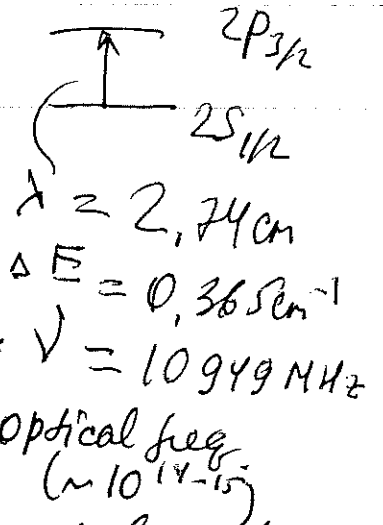 2P3/2
2S1/2
λ = 2,74cm
ΔE = 0,365cm⁻¹
ν = 10949 MHz
optical freq
(~10¹⁴⁻¹⁵)